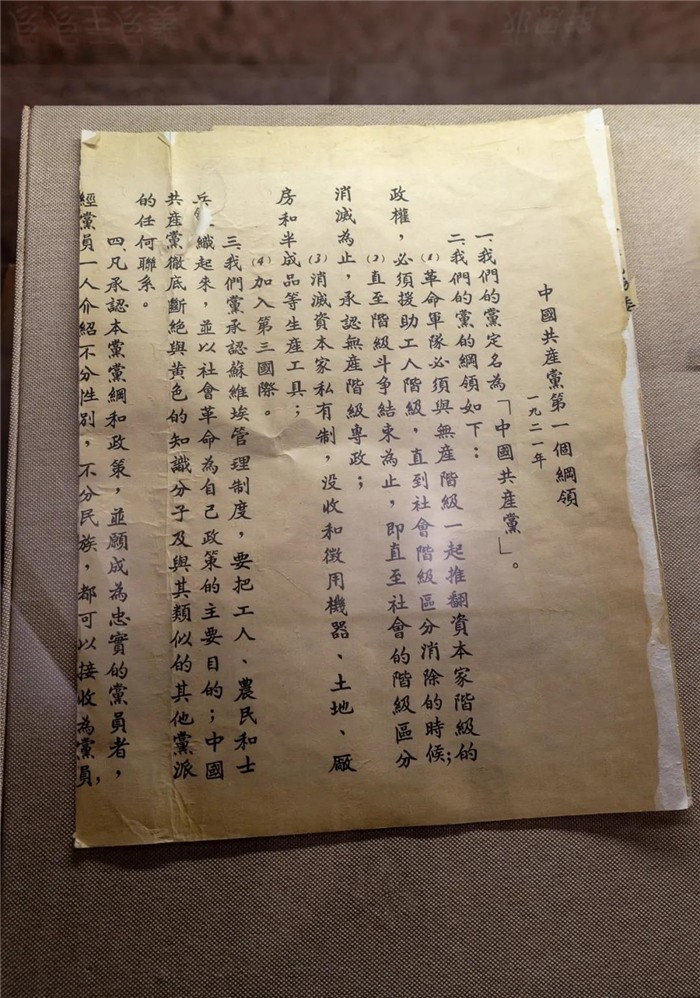 中國共産黨第一個綱領
一九二一年
一、我們的黨定名為「中國共産黨」。
二、我們的黨的綱領如下：
(1)革命軍隊必須與無産階級一起推翻資本家階級的
政權，必須援助工人階級，直到社會階級區分消除的時候；
(2)直至階級斗争結束為止，即直至社會的階級區分
消滅為止，承認無産階級專政；
(3)消滅資本家私有制，没收和徵用機器、土地、廠
房和半成品等生産工具；
(4)加入第三國際。
三、我們黨承認蘇維埃管理制度，要把工人、農民和士
兵織起來，並以社會革命為自己政策的主要目的；中國
共産黨徹底斷絶與黄色的知識分子及與其類似的其他黨派
的任何聯系。
四、凡承認本黨黨綱和政策，並願成為忠實的黨員者，
經黨員一人介紹不分性别，不分民族，都可以接收為黨員，